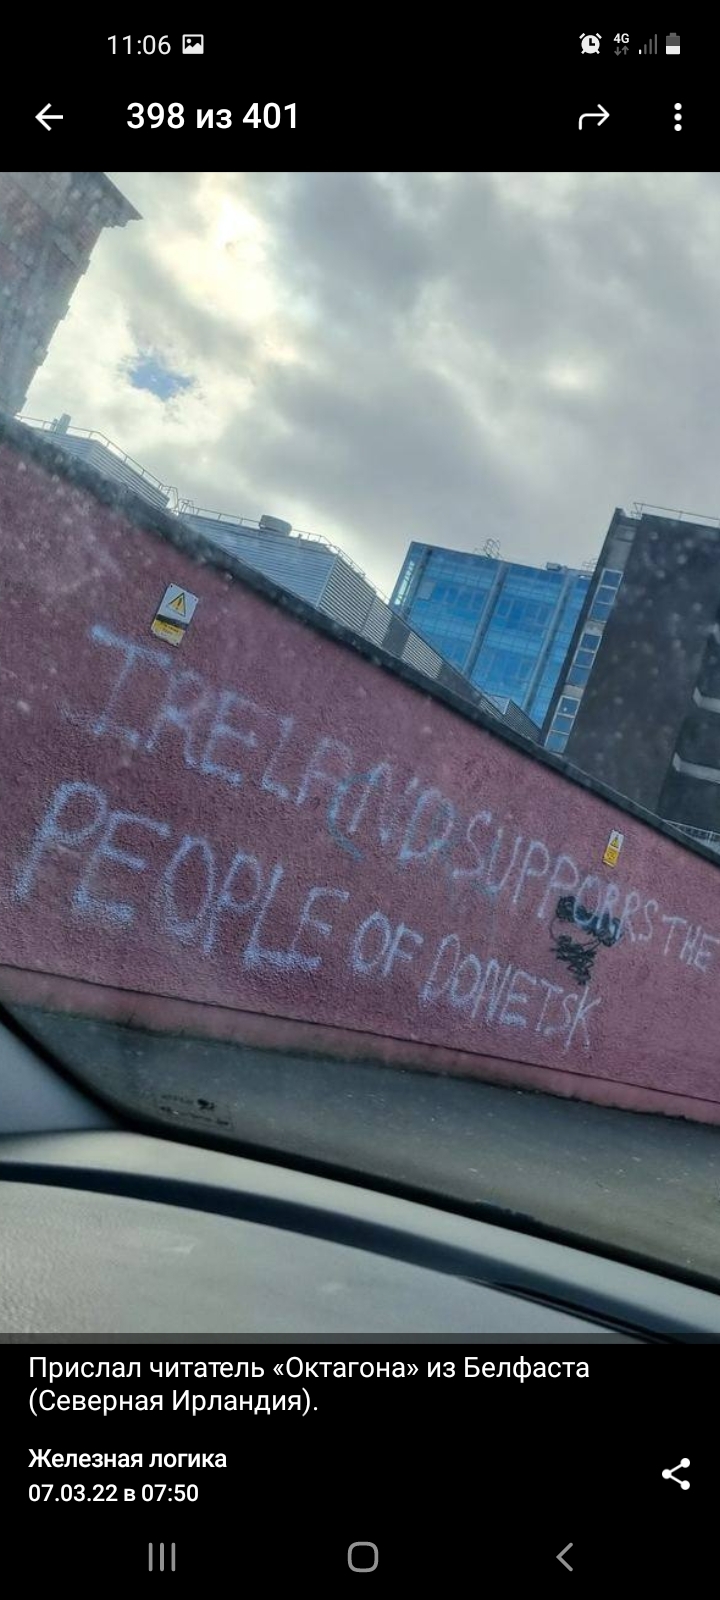 11:06
4G
398 из 401
IRELAND SUPPORRS THE
PEOPLE OF DONETSK
Прислал читатель «Октагона» из Белфаста
(Северная Ирландия).
Железная логика
07.03.22 в 07:50